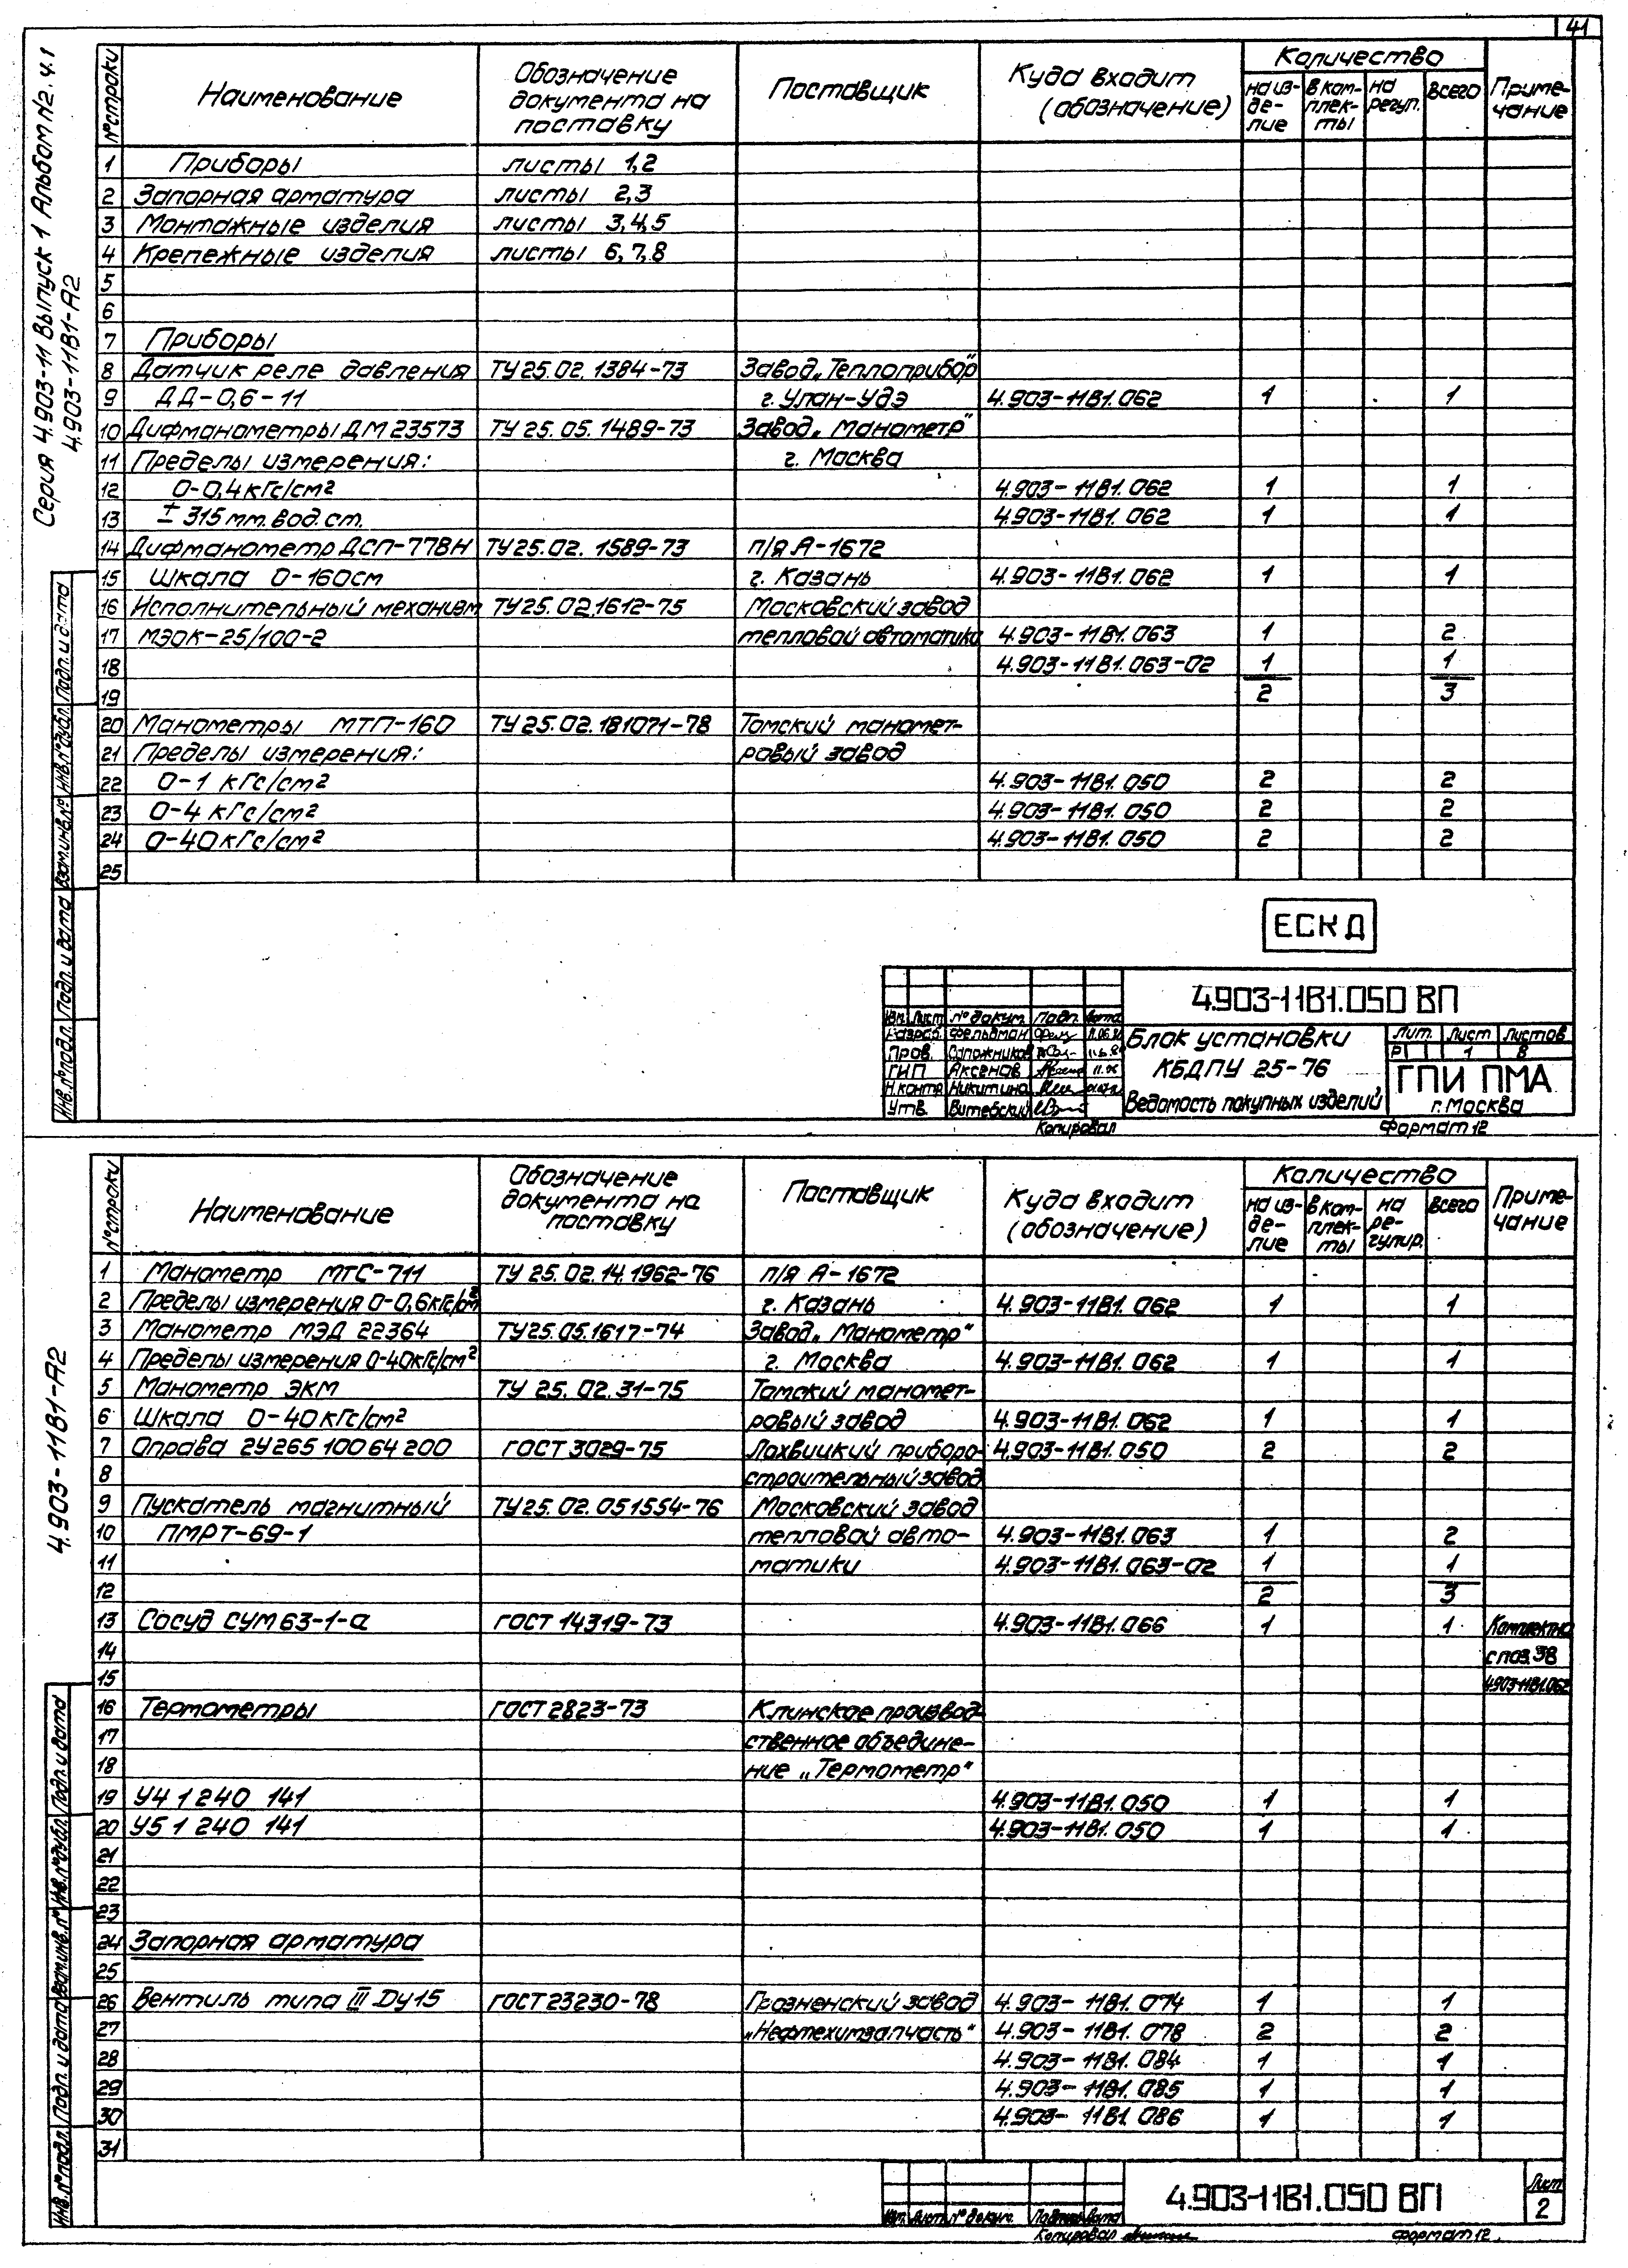 41
Серия 4.903-11 Выпуск 1 Альбом №2. ч.1
4.903-11В1-А2
№ строки Наименование Обозначение документа на поставку Поставщик Куда входит (обозначение) Количество на изделие в комплекты на регул. всего Примечание
1 Приборы листы 1,2
2 Запорная арматура листы 2,3
3 Монтажные изделия листы 3,4,5
4 Крепежные изделия листы 6,7,8
5
6
7 Приборы
8 Датчик реле давления ТУ 25.02.1384-73 Завод „Теплоприбор"
9 ДД-0,6-11 г. Улан-Удэ 4.903-11В1.062 1 1
10 Дифманометры ДМ 23573 ТУ 25.05.1489-73 Завод „Манометр"
11 Пределы измерения: г. Москва
12 0-0,4 кГс/см² 4.903-11В1.062 1 1
13 ± 315 мм. вод. ст. 4.903-11В1.062 1 1
14 Дифманометр ДСП-778Н ТУ 25.02.1589-73 п/я А-1672
15 Шкала 0-160 см г. Казань 4.903-11В1.062 1 1
16 Исполнительный механизм ТУ 25.02.1612-75 Московский завод
17 МЭОК-25/100-2 тепловой автоматики 4.903-11В1.063 1 2
18 4.903-11В1.063-02 1 1
19 2 3
20 Манометры МТП-160 ТУ 25.02.181071-78 Томский маномет-
21 Пределы измерения: ровый завод
22 0-1 кГс/см² 4.903-11В1.050 2 2
23 0-4 кГс/см² 4.903-11В1.050 2 2
24 0-40 кГс/см² 4.903-11В1.050 2 2
25
Инв.№подл. Подп. и дата Взам.инв.№ Инв.№дубл. Подп. и дата
ЕСКД
4.903-11В1.050 ВП
Изм. Лист № докум. Подп. Дата
Разраб. Фельдман
Пров. Сапожников
ГИП Аксенов
Н.контр. Никитина
Утв. Витебский
Блок установки
КБДПУ 25-76
Ведомость покупных изделий
Лит. Лист Листов
Р 1 8
ГПИ ПМА
г. Москва
Копировал Формат 12
4.903-11В1-А2
№ строки Наименование Обозначение документа на поставку Поставщик Куда входит (обозначение) Количество на изделие в комплекты на регулир. всего Примечание
1 Манометр МТС-711 ТУ 25.02.14.1962-76 п/я А-1672
2 Пределы измерения 0-0,6 кГс/см² г. Казань 4.903-11В1.062 1 1
3 Манометр МЭД 22364 ТУ 25.05.1617-74 Завод „Манометр"
4 Пределы измерения 0-40 кГс/см² г. Москва 4.903-11В1.062 1 1
5 Манометр ЭКМ ТУ 25.02.31-75 Томский маномет-
6 Шкала 0-40 кГс/см² ровый завод 4.903-11В1.062 1 1
7 Оправа 2У 265 100 64 200 ГОСТ 3029-75 Лохвицкий приборо- 4.903-11В1.050 2 2
8 строительный завод
9 Пускатель магнитный ТУ 25.02.051554-76 Московский завод
10 ПМРТ-69-1 тепловой авто- 4.903-11В1.063 1 2
11 матики 4.903-11В1.063-02 1 1
12 2 3
13 Сосуд СУМ 63-1-а ГОСТ 14319-73 4.903-11В1.066 1 1 Комплектно
14 с поз. 38
15 4.903-11В1.062
16 Термометры ГОСТ 2823-73 Клинское производ-
17 ственное объедине-
18 ние „Термометр"
19 У4 1 240 141 4.903-11В1.050 1 1
20 У5 1 240 141 4.903-11В1.050 1 1
21
22
23
24 Запорная арматура
25
26 Вентиль типа III Dу15 ГОСТ 23230-78 Грозненский завод 4.903-11В1.074 1 1
27 „Нефтехимзапчасть" 4.903-11В1.078 2 2
28 4.903-11В1.084 1 1
29 4.903-11В1.085 1 1
30 4.903-11В1.086 1 1
31
Инв.№подл. Подп. и дата Взам.инв.№ Инв.№дубл. Подп. и дата
Изм. Лист № докум. Подпись Дата
4.903-11В1.050 ВП
Лист
2
Копировал Формат 12